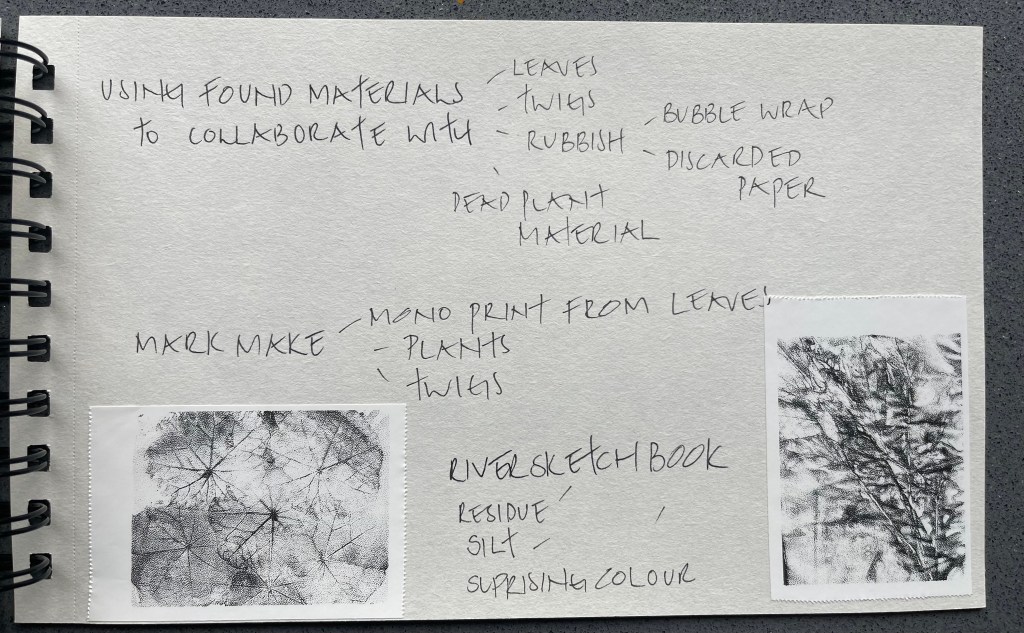 USING FOUND MATERIALS
TO COLLABORATE WITH
LEAVES
TWIGS
RUBBISH
BUBBLE WRAP
DISCARDED
PAPER
DEAD PLANT
MATERIAL
MARK MAKE
MONO PRINT FROM LEAVES
PLANTS
TWIGS
RIVER SKETCH BOOK
RESIDUE
SILT
SUPRISING COLOUR